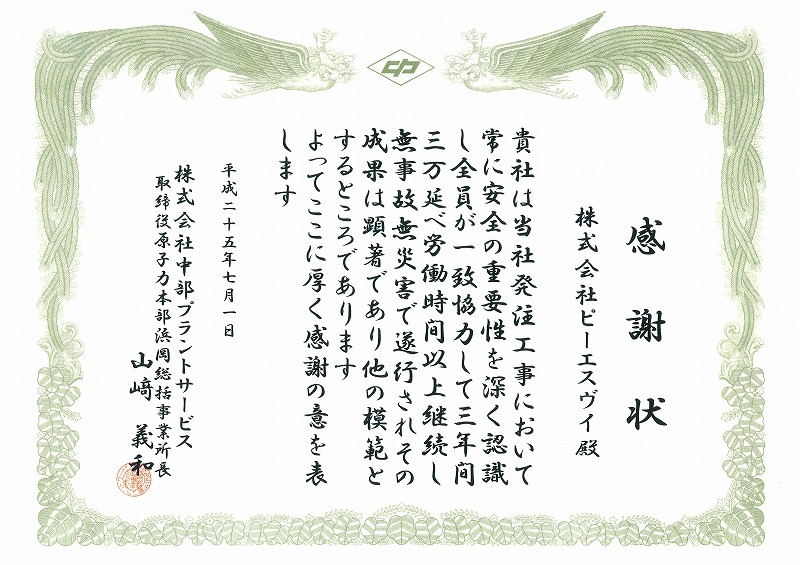 感謝状
株式会社ピーエスヴイ殿
貴社は当社発注工事において
常に安全の重要性を深く認識
し全員が一致協力して三年間
三万延べ労働時間以上継続し
無事故無災害で遂行されその
成果は顕著であり他の模範と
するところであります
よってここに厚く感謝の意を表
します
平成二十五年七月一日
株式会社中部プラントサービス
取締役原子力本部浜岡総括事業所長
山﨑義和